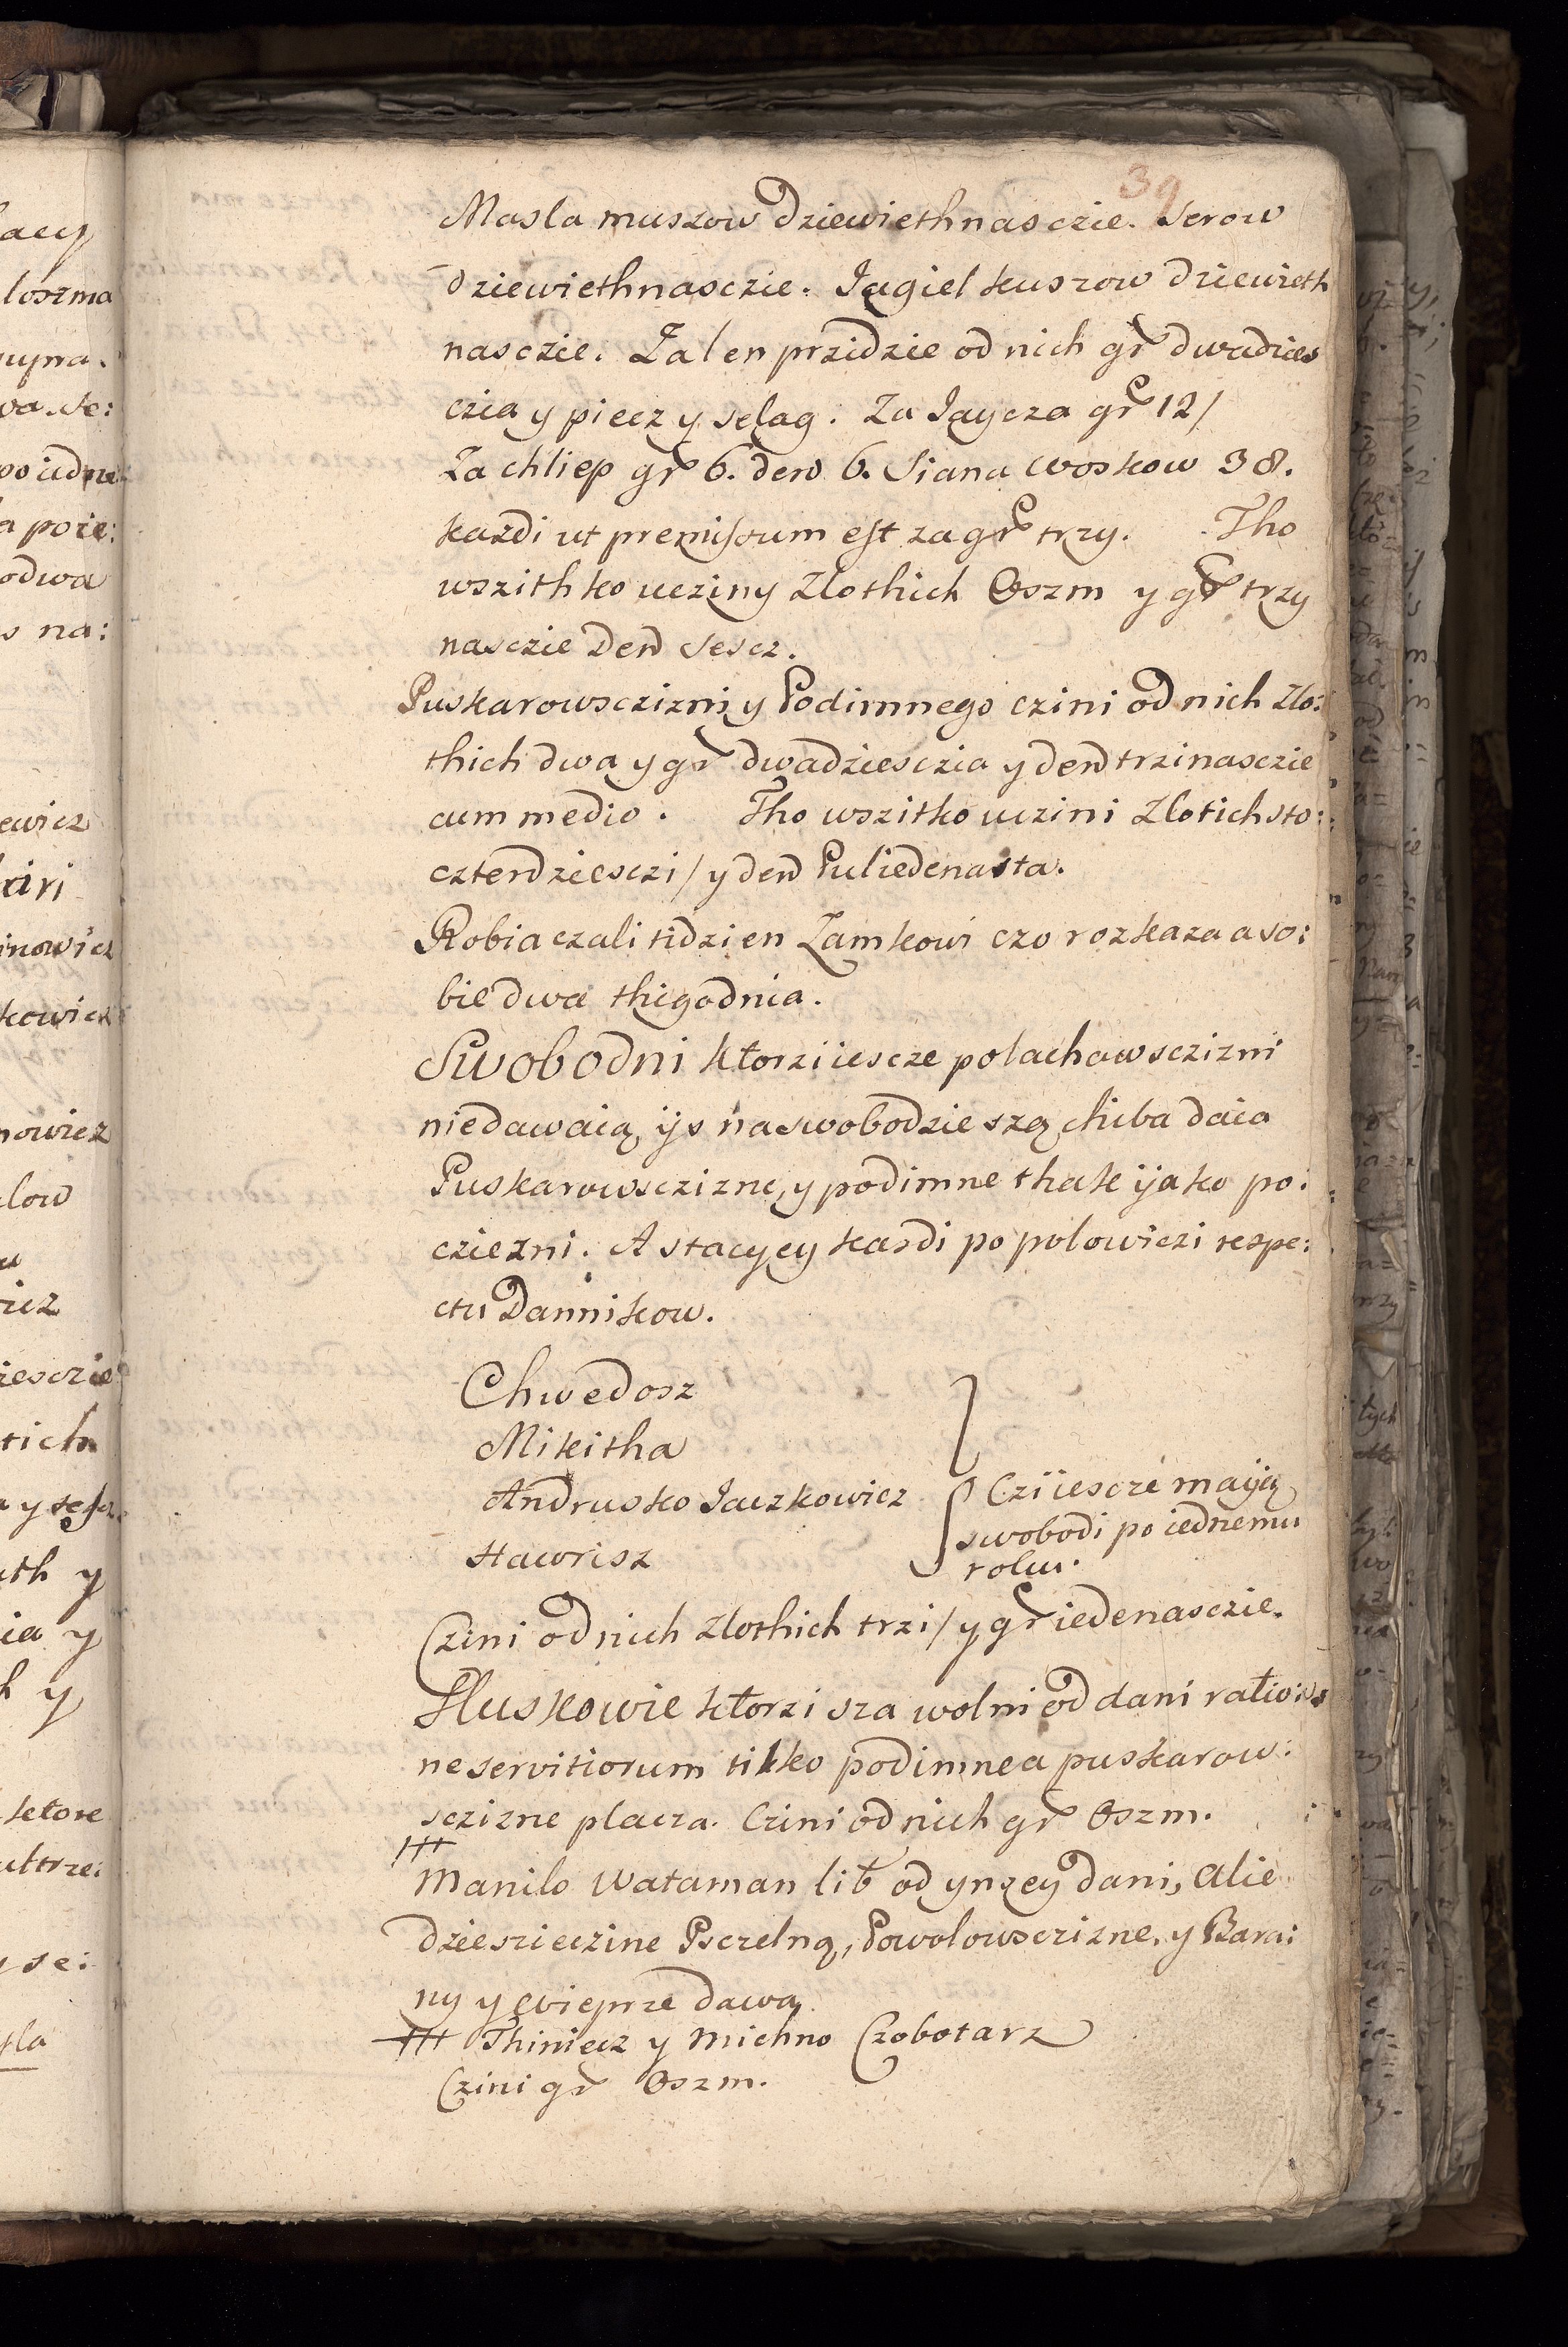 39
Masla muszow dziewiethnasczie. Serow
dziewiethnasczie. Jagiel kuszow dziewieth
nasczie. Za len przidzie od nich gr dwadzies
czia y piecz y selag. Za Jaycza gr 12/
Za chliep gr 6. den 6. Siana woskow 38.
kazdi ut premissum est za gr trzy. Tho
wszithko ucziny Zlothich Oszm y gr trzy
nasczie den sescz.
Puskarowsczizni y Podimnego czini od nich Zlo:
thich dwa y gr dwadziesczia y den trzinasczie
cum medio. Tho wszitko uczini Zlotich sto:
czterdziesczi/ y den Puliedenasta.
Robia czali tidzien Zamkowi czo rozkaza a so:
bie dwa thigodnia.
Swobodni ktorzi iescze polachowsczizni
niedawaią, ijs na swobodzie szą chiba daia
Puskarowsczizne, y podimne thak ijako po:
cziezni. A stacyey kazdi po polowiczi respe:
ctu Dannikow.
Chwedosz
Mikitha
Andrusko Jaczkowicz
Hawrisz
Czi iescze maiją
swobodi po iednemu
roku.
Czini od nich zlothich trzi/ y gr iedenasczie.
Sluskowie ktorzi sza wolni od dani ratio:
ne servitiorum tilko podimne a puskarow:
sczizne placza. Czini od nich gr Oszm.
Manilo Wataman lib od ynszey dani, Alie
dzieszieczine Psczelną, Powolowsczizne, y Bara:
ny y wieprze dawa.
Thiniecz y Michno Czobotarz
Czini gr Oszm.